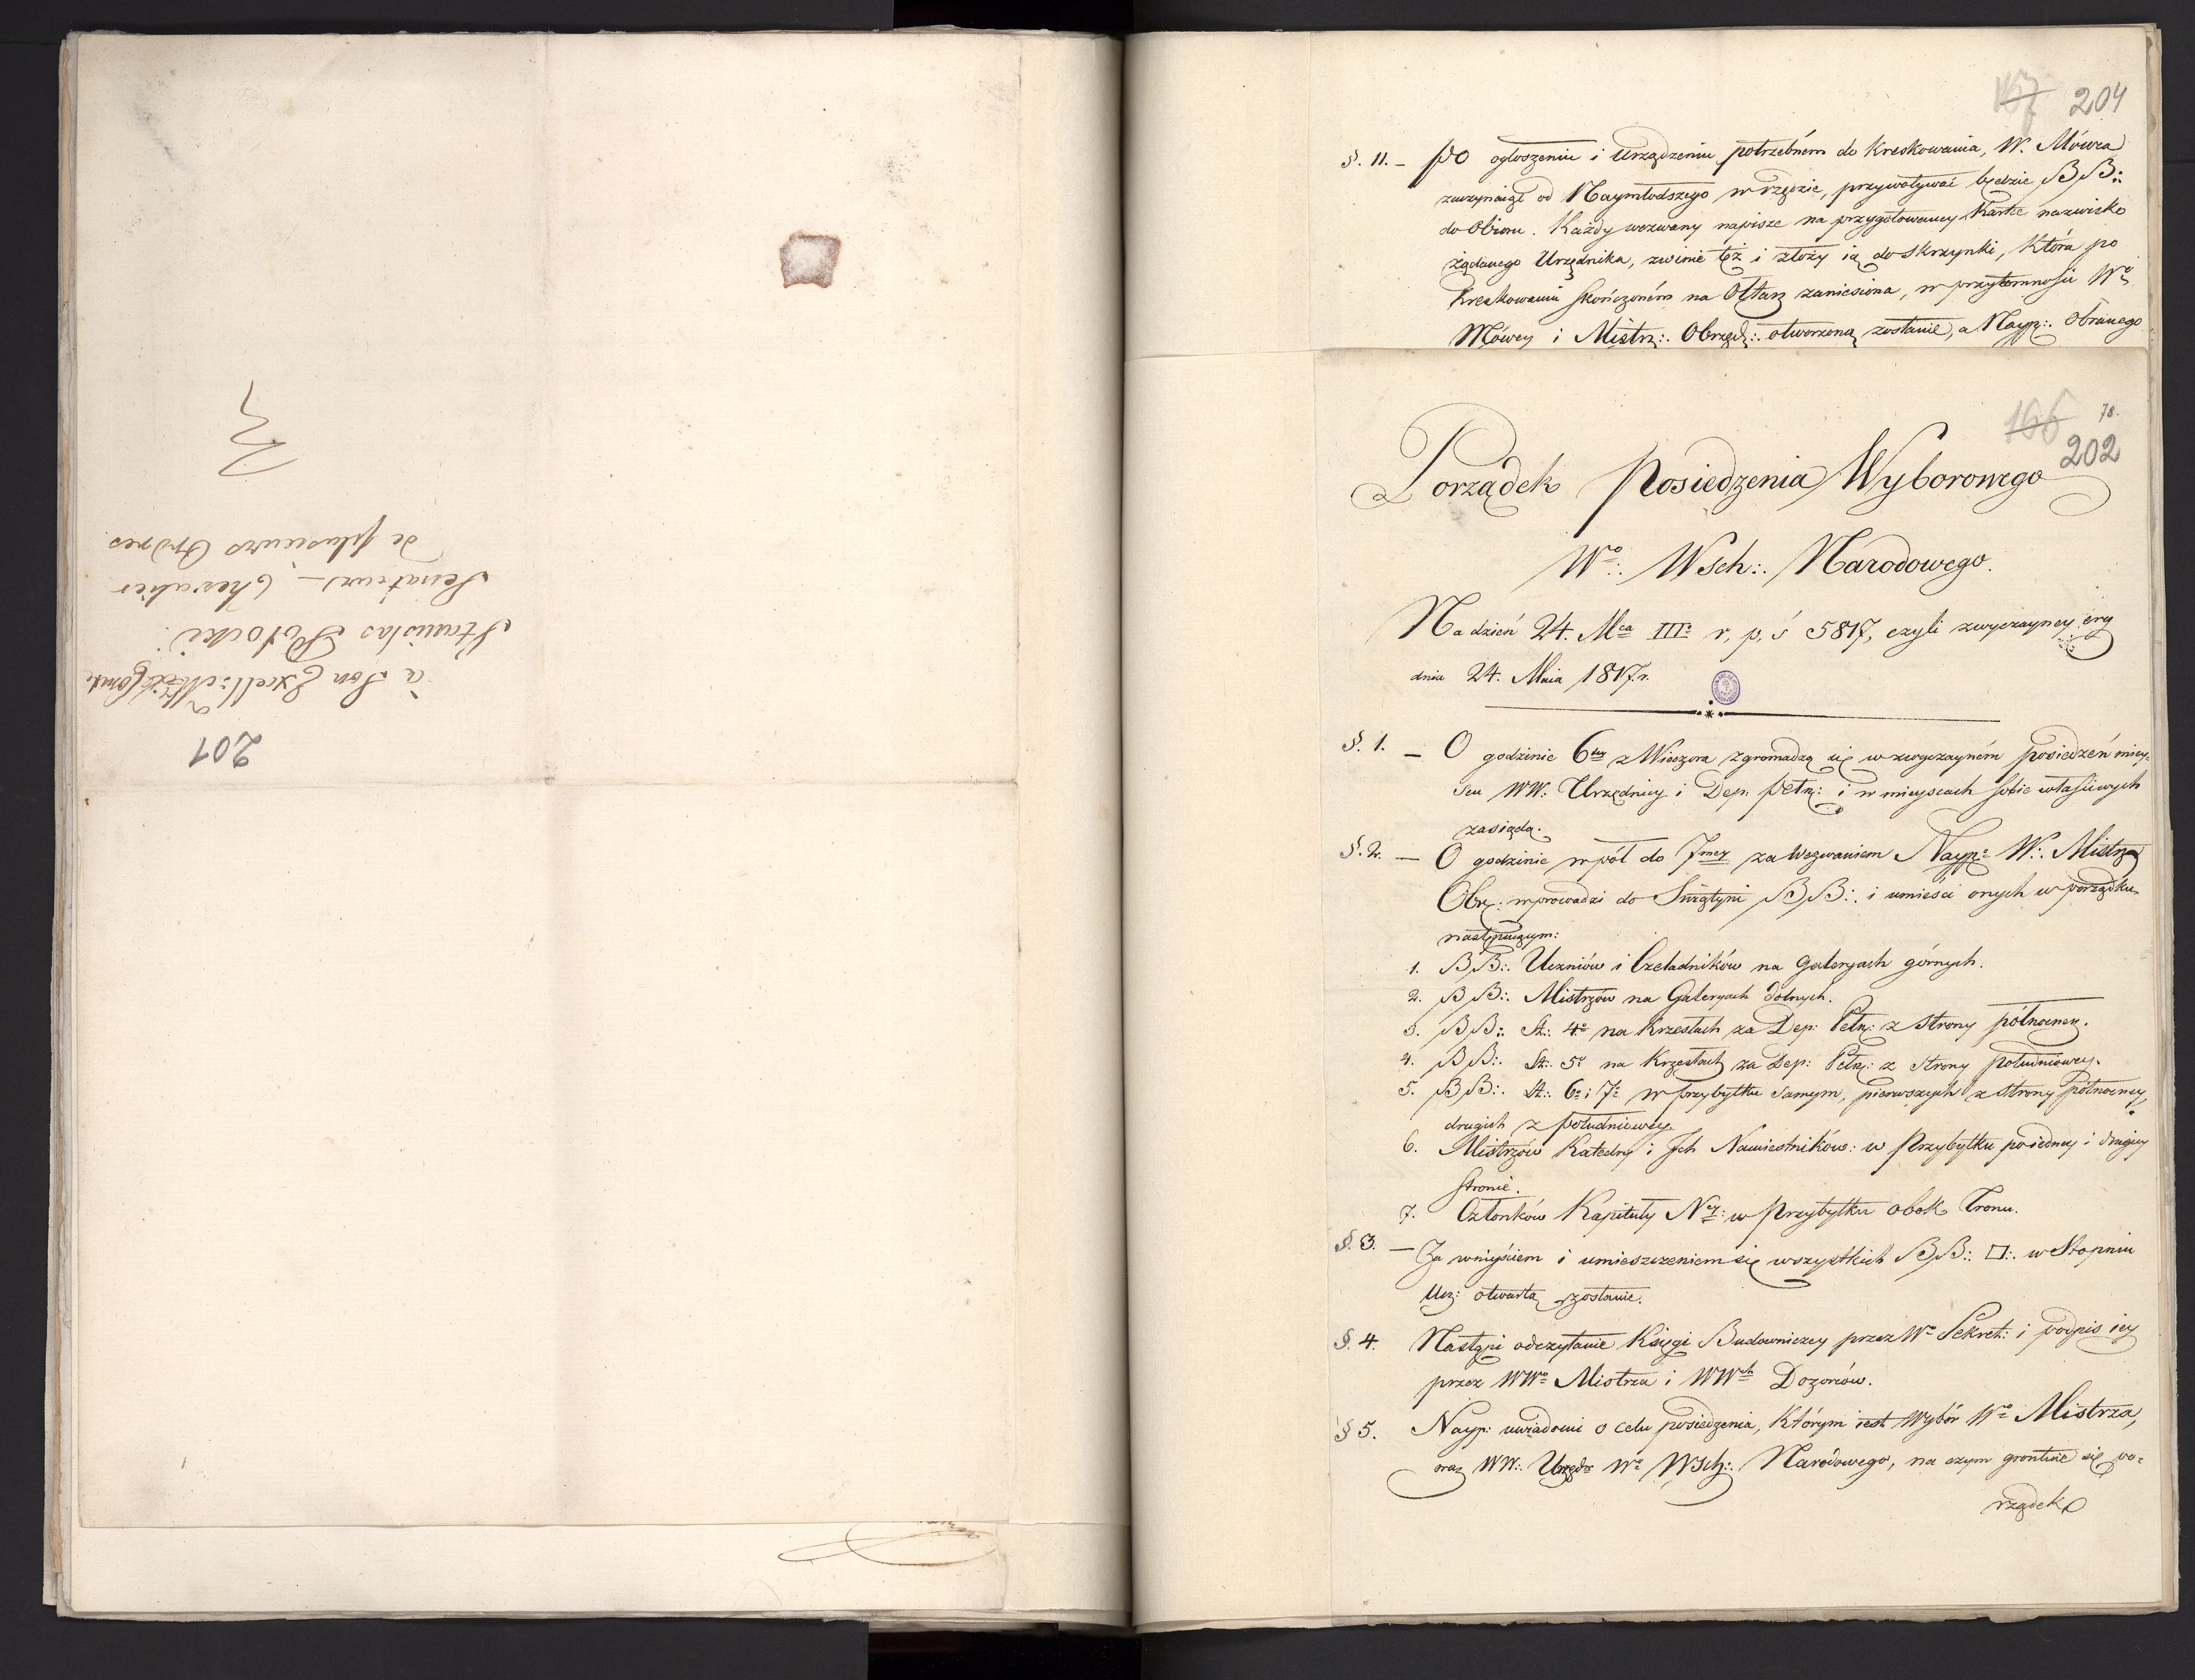 201
à Son Excell: Mr le Comte
Stanislas Potocki
Senateur – Chevalier
de plusieurs Ordres
167 204
§. 11. – Po ogłoszeniu i Urządzeniu potrzebném do Kreskowania, W. Mówca
zaczynaiąc od Naymłodszego w rzędzie, przywoływać będzie BB∴
do Obioru. Każdy wezwany napisze na przygotowaney Kartce nazwisko
żądanego Urzędnika, zwinie też i złoży ią do skrzynki, Która po
Kreskowaniu skończoném na Ołtarz zaniesiona, w przytomności Wo
Mówcy i Mistrz∴ Obrzęd∴ otworzoną zostanie, a Nayp∴ Obranego
166 78.
202
Porządek Posiedzenia Wyborowego
Wo∴ Wsch∴ Narodowego.
Na dzień 24. Mca IIIo r, p, ś 5817, czyli zwyczayney ery
dnia 24. Maia 1817.r.
§. 1. – O godzinie 6tey z Wieczora zgromadzą się w zwyczayném posiedzeń miey-
scu WW: Urzędnicy i Dep: Pełn: i w mieyscach sobie właściwych
zasiądą.
§. 2. – O godzinie wpół do 7mey za Wezwaniem Nayp: W∴ Mistrz
Obrz: wprowadzi do Swiątyni BB∴ i umieści onych w porządku
następuiącym:
1. BB∴ Uczniów i Czeladników na Galeryach górnych.
2. BB∴ Mistrzów na Galeryach dolnych.
3. BB∴ St∴ 4o na Krzesłach za Dep: Pełn: z Strony północney.
4. BB∴ St∴ 5o na Krzesłach za Dep: Pełn: z Strony południowey.
5. BB∴ St∴ 6o i 7o w przybytku samym, pierwszych z Strony północney,
drugich z południowey.
6. Mistrzów Katedry i Ich Namiestników: w Przybytku po iedney i drugiey
stronie.
7. Członków Kapituły Ney: w Przybytku obok Tronu.
§. 3. – Za wniyściem i umieszczeniem się wszystkich BB∴ □∴ w Stopniu
Ucz: otwartą zostanie.
§. 4. Nastąpi odczytanie Księgi Budowniczey przez Wo Sekret: i podpis iey
przez WWo Mistrza i WWch Dozorców.
§ 5. Nayp: uwiadomi o celu posiedzenia, Którym iest Wybór Wo Mistrza,
oraz WW∴ Urzęd: Wo Wsch∴ Narodowego, na czym gruntuie się po-
rządek